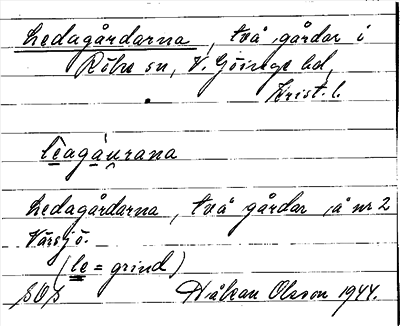 Ledagårdarna, två gårdar i
Röke sn, V. Göinge hd,
Krist. l.
lēagáu̯rana
Ledagårdarna, två gårdar å nr 2
Värsjö.
(le = grind)
SOS Håkan Olsson 1944.